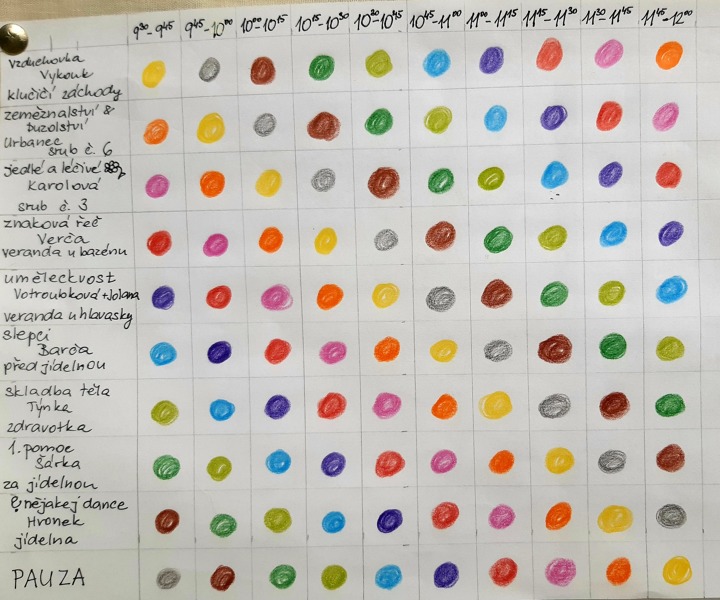 9³⁰-9⁴⁵ 9⁴⁵-10⁰⁰ 10⁰⁰-10¹⁵ 10¹⁵-10³⁰ 10³⁰-10⁴⁵ 10⁴⁵-11⁰⁰ 11⁰⁰-11¹⁵ 11¹⁵-11³⁰ 11³⁰-11⁴⁵ 11⁴⁵-12⁰⁰
vzduchovka
Vykouk
klučičí záchody
zeměznalství &
buzolství
Urbanec
srub č. 6
jedlé a léčivé
Karolová
srub č. 3
znaková řeč
Verča
veranda u bazénu
uměleckvost
Votroubková + Jolana
veranda u hlavasky
slepci
Barča
před jídelnou
skladba těla
Týnka
zdravotka
1. pomoc
Šárka
za jídelnou
nějakej dance
Hronek
jídelna
PAUZA